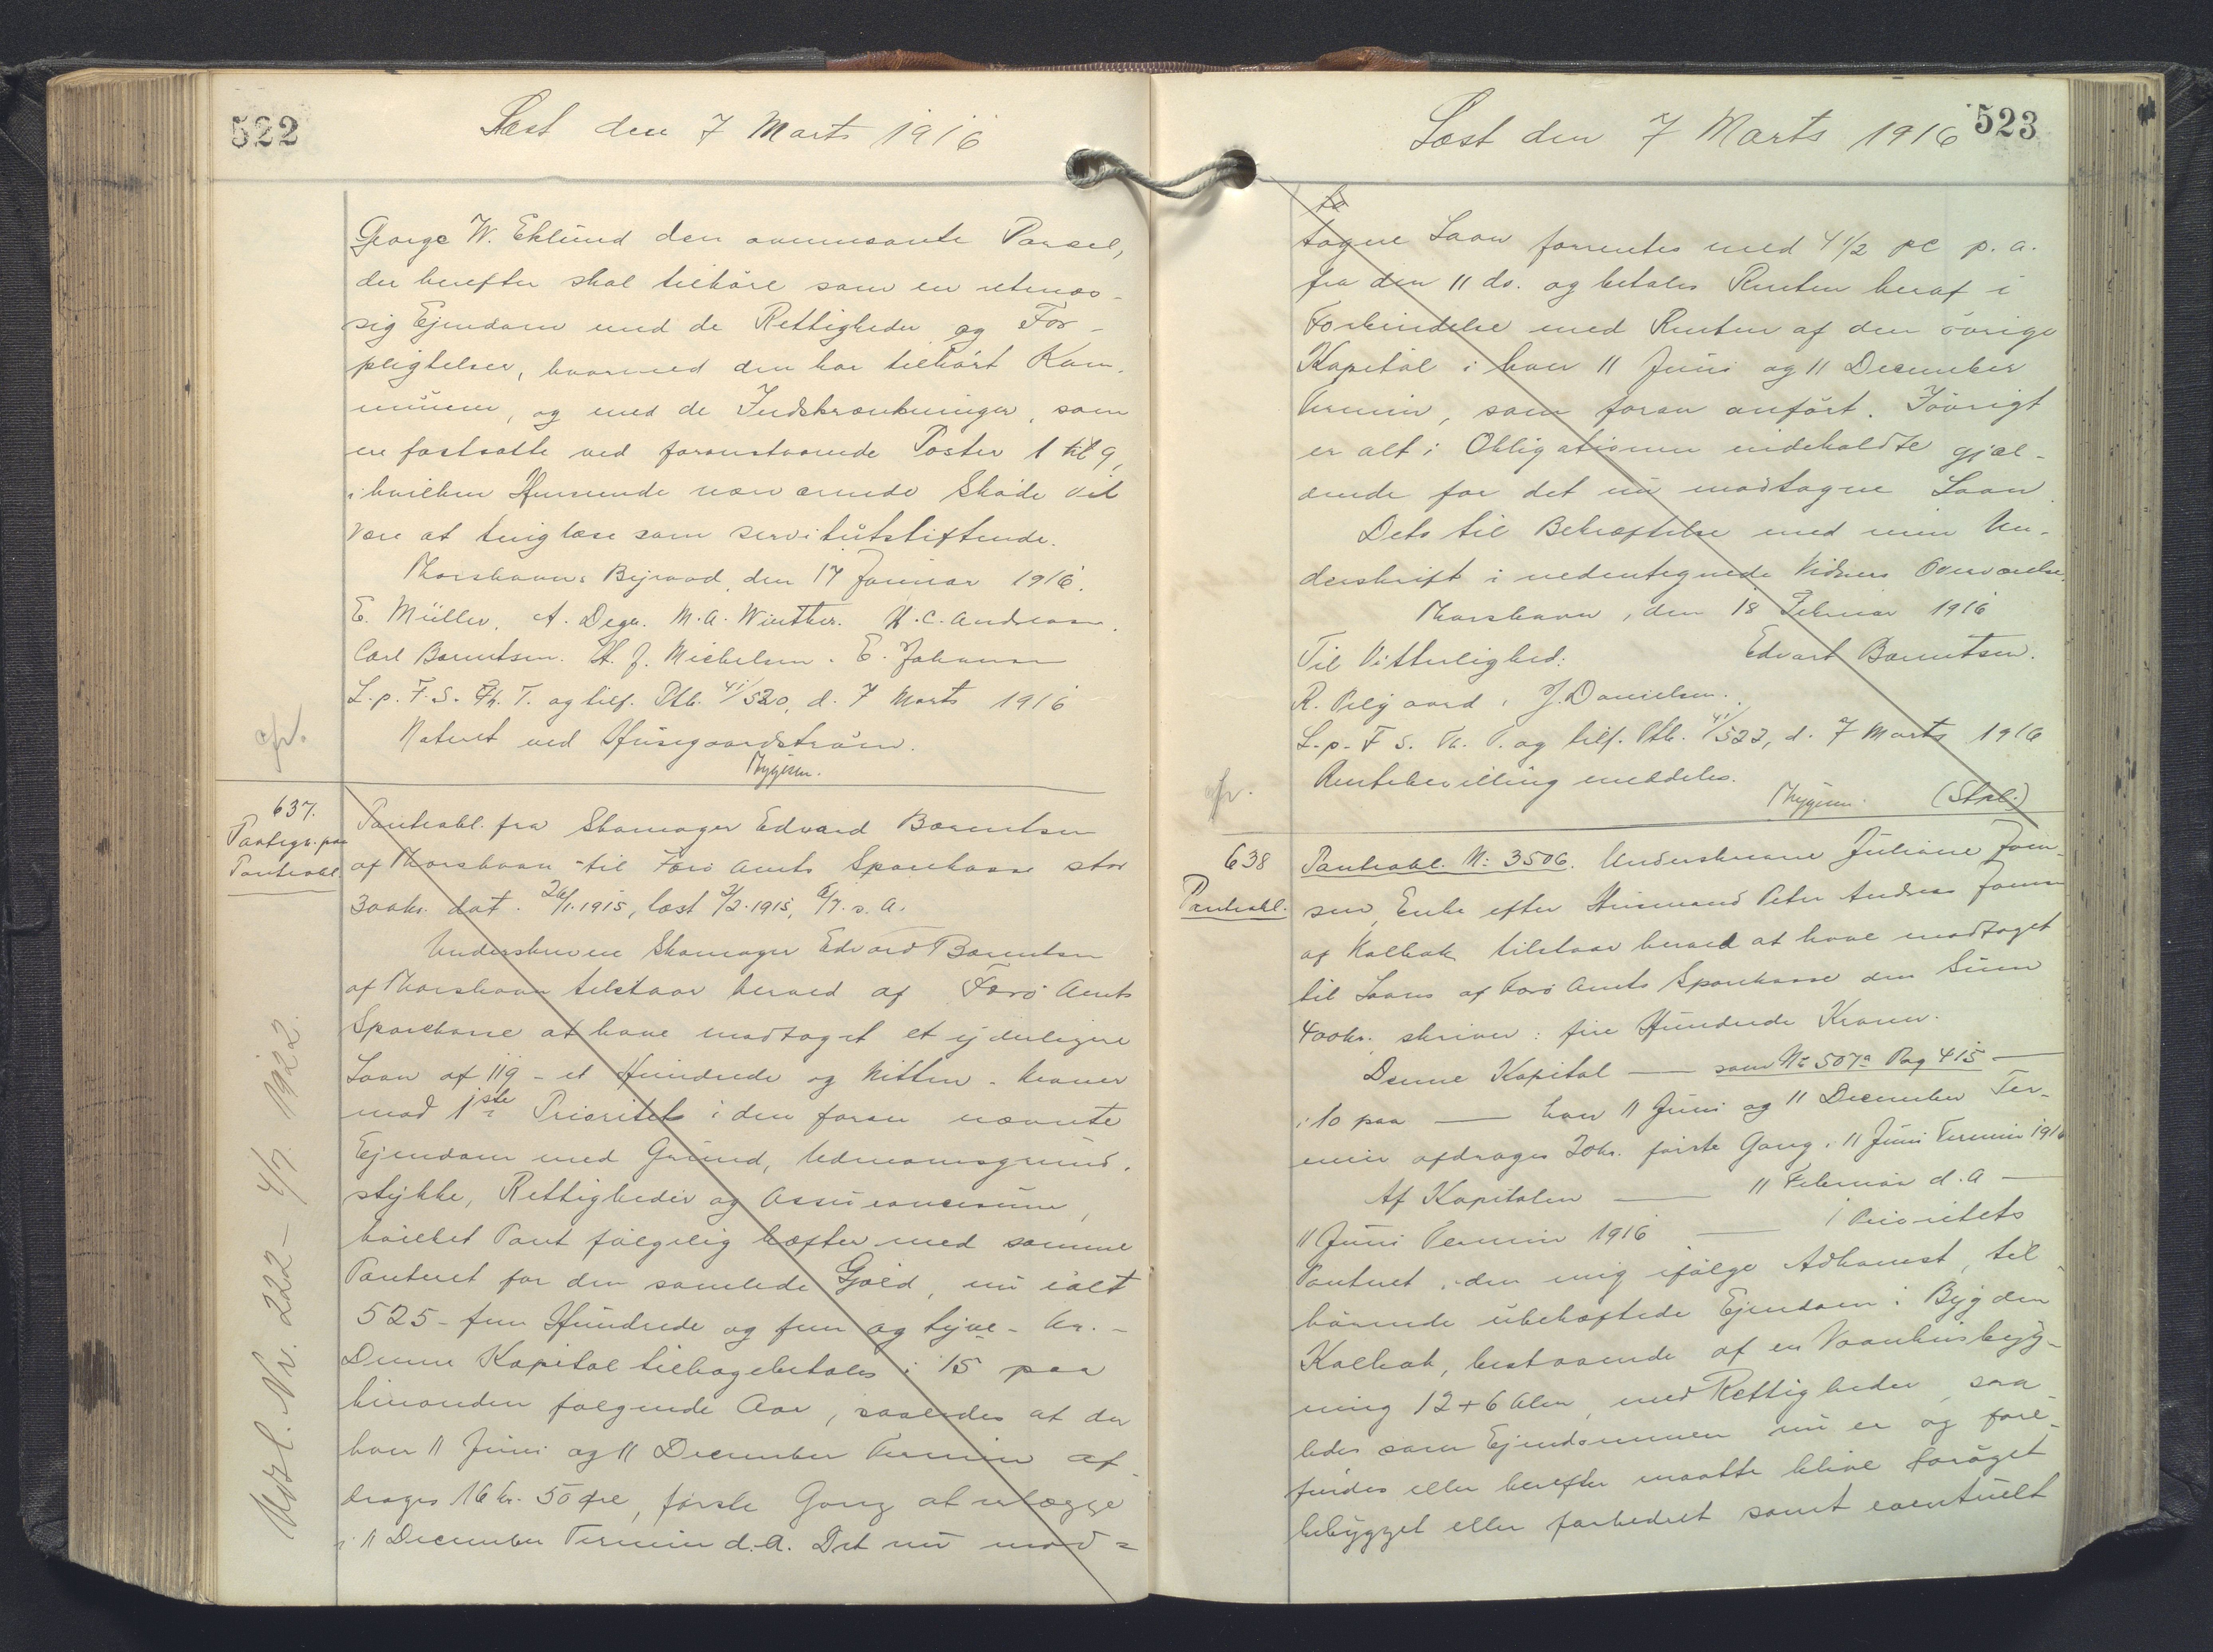 522
Læst den 7 Marts 1916
George W. Eklund den ovennævnte Parsel,
der herefter skal tilhöre som en retmæs-
sig Ejendom med de Rettigheder og For-
pligtelser, hvormed den har tilhört Kom-
munen, og med de Indskrænkninger, som
ere fastsatte ved foranstaaende Poster 1 til 9,
i hvilken Henseende nærværende Skøde vil
være at tinglæse som servitutstiftende.
Thorshavns Byraad, den 17 Januar 1916.
E. Müller. A. Degn. M. A. Winther. H. C. Andreasen.
Carl Barentsen. H. J. Michelsen. E. Johansen
L. p. F. S. Th. T. og tilf. Ptb. 41/520, d. 7 Marts 1916
Noteret ved Husegaardstrøen.
Thygesen.
cfr.
637.
Pantegr. paa
Panteobl.
Panteobl. fra Skomager Edvard Barentsen
af Thorshavn til Færö Amts Sparekasse stor
300kr. dat. 26/1.1915, læst 2/2.1915, 6/7. s. A.
Underskrevne Skomager Edvard Barentsen
af Thorshavn tilstaar herved af Færö Amts
Sparekasse at have modtaget et yderligere
Laan af 119 - et Hundrede og Nitten - Kroner
mod 1ste Prioritet i den foran nævnte
Ejendom med Grund, Udmarksgrund-
stykke, Rettigheder og Assurancesum,
hvilket Pant fölgelig hæfter med samme
Panteret for den samlede Gjæld, nu ialt
525 - fem Hundrede og fem og tyve - Kr. -
Denne Kapital tilbagebetales i 15 paa
hinanden følgende Aar, saaledes at der
hver 11 Juni og 11 December Termin af-
drages 16 kr. 50 Øre, første Gang at erlægge
i 11 December Termin d. A. Det nu mod=
Udsl. Nr. 222 - 4/7. 1922.
523
Læst den 7 Marts 1916
ta
tagne Laan forrentes med 4 1/2 pc p. a.
fra den 11 ds. og betales Renten heraf i
Forbindelse med Renten af den övrige
Kapital i hver 11 Juni og 11 December
Termin, som foran anfört. Iövrigt
er alt i Obligationen indeholdte gjæl-
dende for det nu modtagne Laan.
Dets til Bekræftelse med min Un-
derskrift i nedentegnede Vidners Overværelse.
Thorshavn, den 18 Februar 1916
Til Vitterlighed: Edvart Barentsen.
R. Pelgaard, J. Danielsen.
L. p. F. S. Th. T. og tilf. Ptb. 41/522, d. 7 Marts 1916
Rentebevilling meddeles.
Thygesen. (Stpl.)
cfr.
638
Panteobl.
Panteobl. No 3506. Underskrevne Juliane Joen-
sen, Enke efter Husmand Peter Andreas Joensen
af Kalbak tilstaar herved at have modtaget
til Laans af Færö Amts Sparekasse den Sum
400kr. skriver: fire Hundrede Kroner.
Denne Kapital — som No 507a Pag 415 —
i 10 paa — hver 11 Juni og 11 December Ter-
min afdrages 20kr. første Gang i 11 Juni Termin 1916
Af Kapitalen — 11 Februar d. A —
11 Juni Termin 1916 — 1 Prioritets
Panteret i den mig ifölge Adkomst, til-
hörende übehæftede Ejendom i Bygden
Kalbak, bestaaende af en Vaanhusbyg-
ning 12 + 6 Alen, med Rettigheder, saa-
ledes som Ejendommen nu er og fore-
findes eller herefter maatte blive forøget
bebygget eller forbedret samt eventuelt